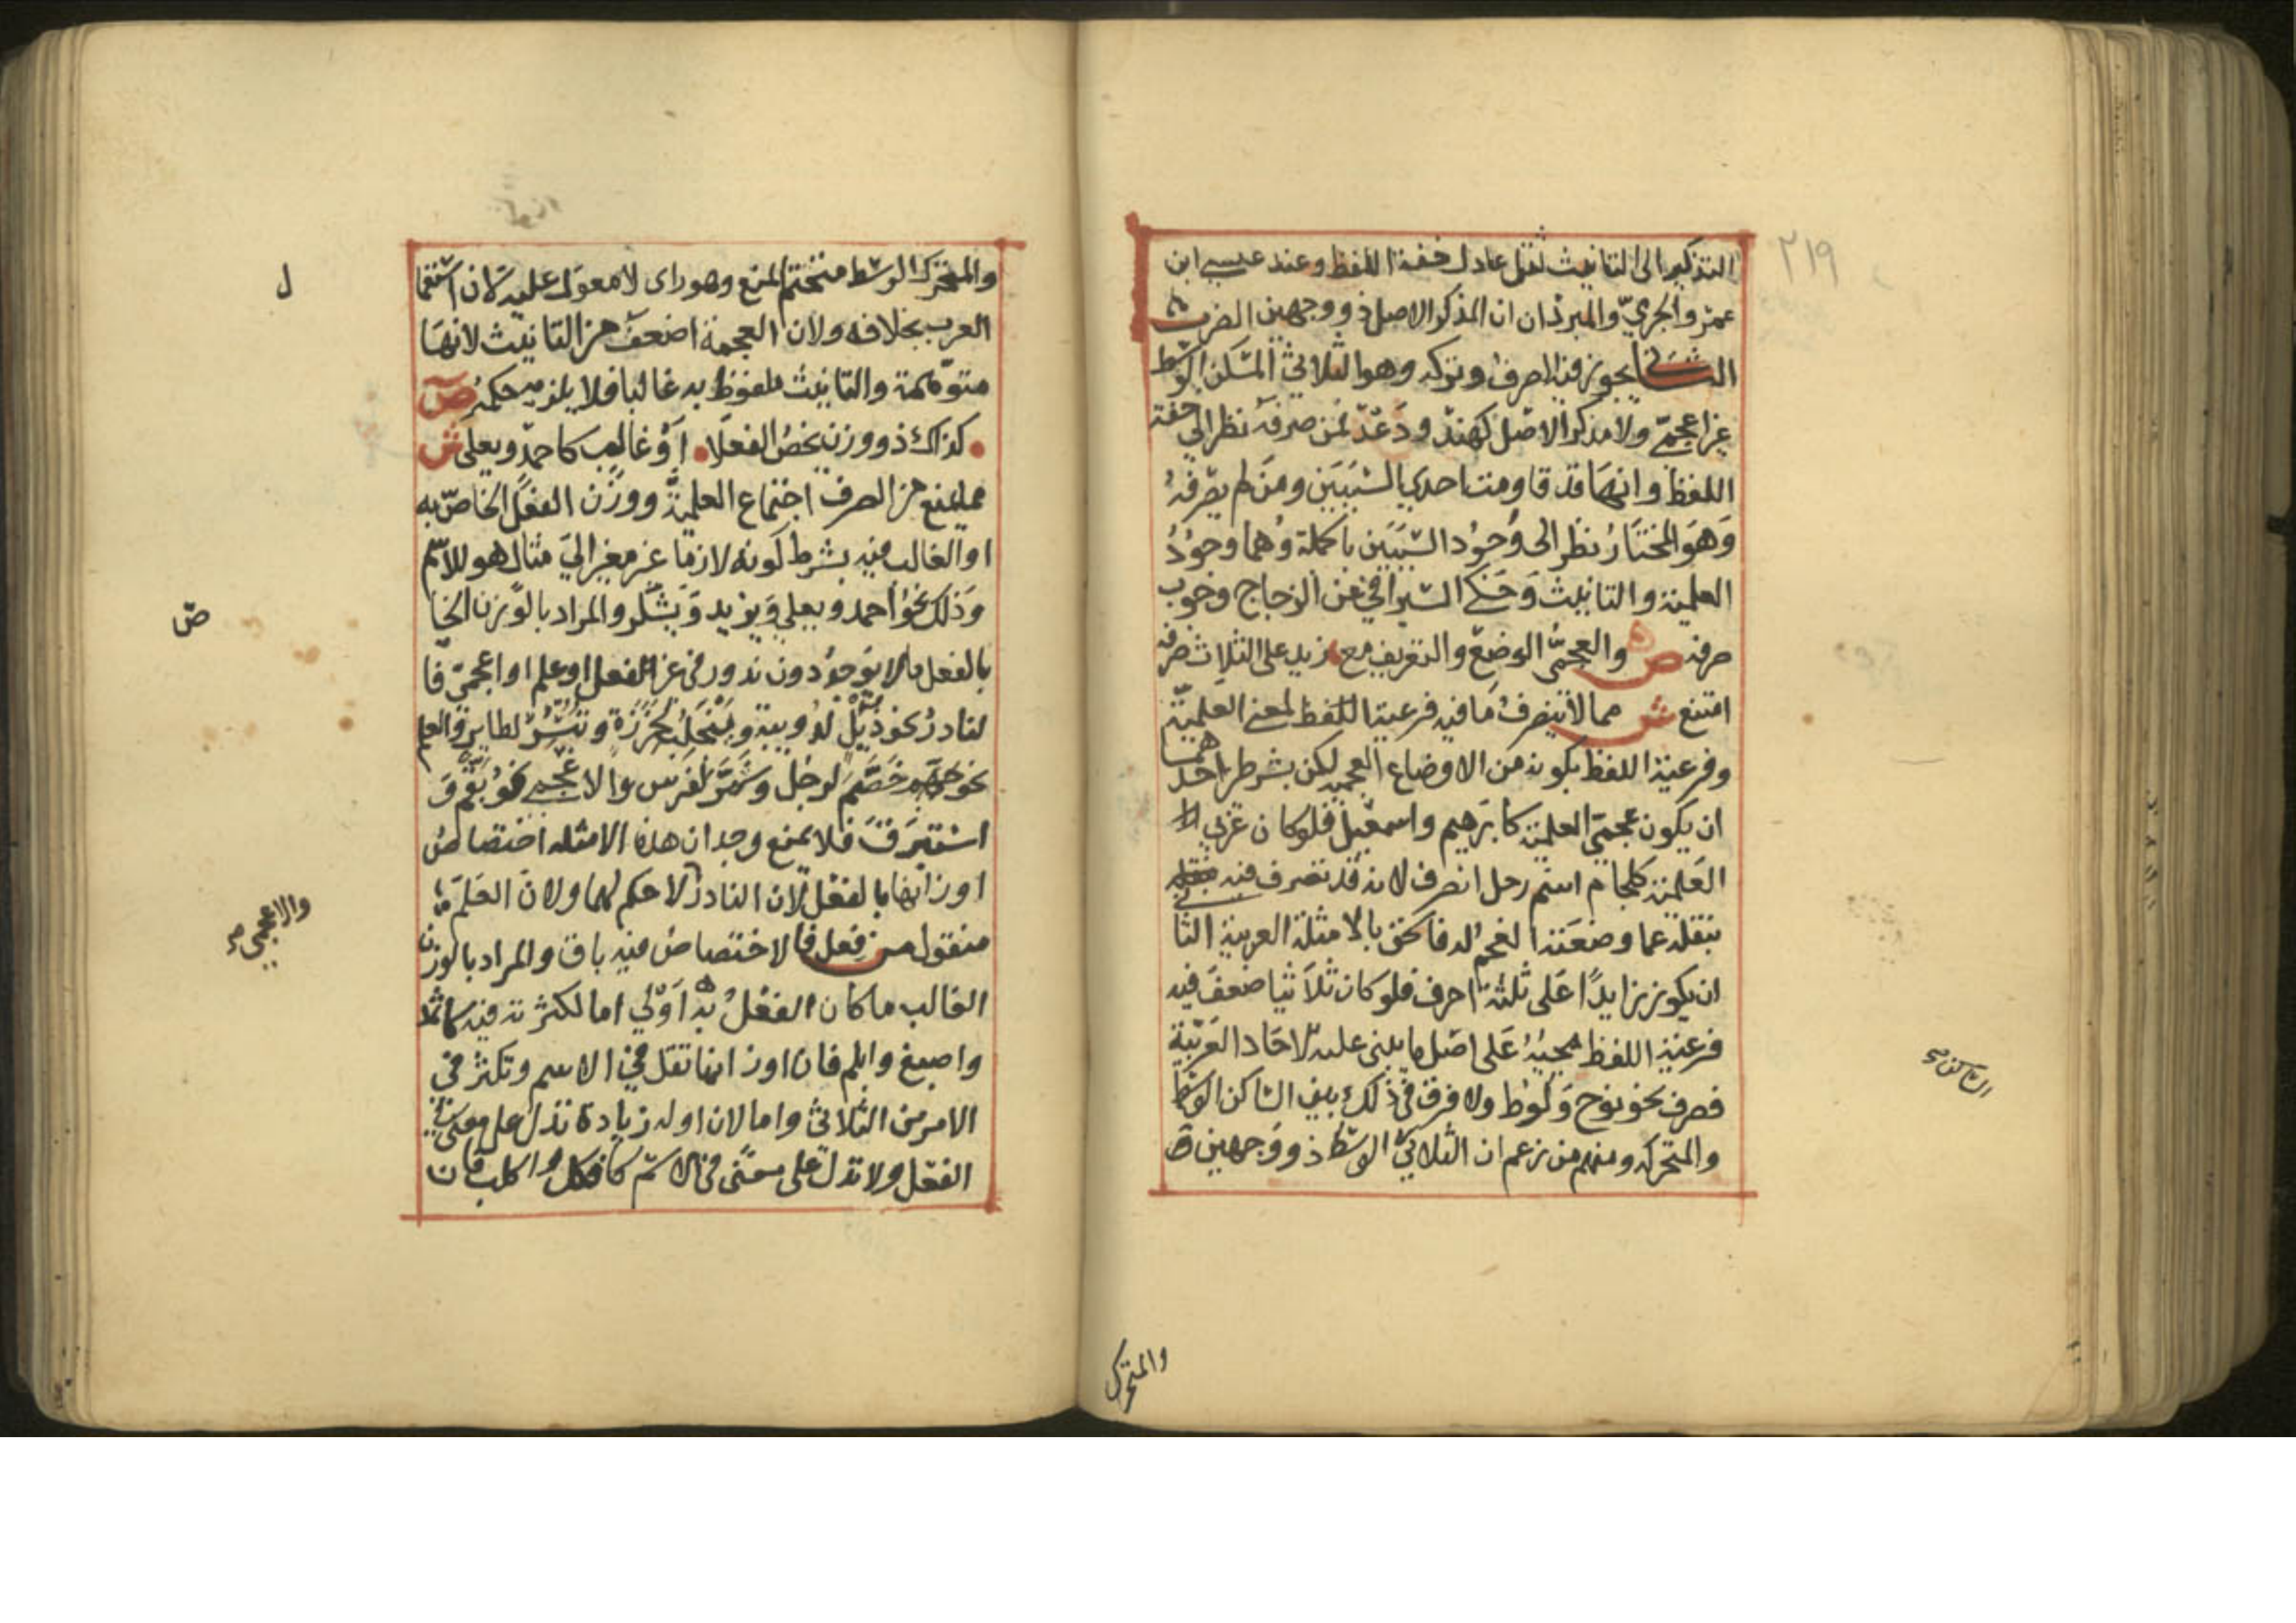 ٢١٩
التذكير الى التانيث ثقل عادل خفة اللفظ وعند عيسى ابن
عمر والجرمي والمبرد ان المذكر الاصل ذو وجهين الضرب
الثاني يجوز فيه الصرف وتركه وهو الثلاثي المسكن الوسط
غير اعجمي ولا مذكر الاصل كهند ودعد فمن صرفه نظر الى خفة
اللفظ وانها قد قاومت احدى السببين ومن لم يصرفه
وهو المختار نظر الى وجود السببين باكملة وهما وجود
العلمية والتانيث وحكى السيرافي عن الزجاج وجوب
صرفه ص والعجمي الوضع والتعريف مع زيد على الثلاث صرفه
امتنع ش مما لا ينصرف ما فيه فرعية اللفظ لمعنى العلمية
وفرعية اللفظ بكونه من الاوضاع العجمية لكن بشرطين احدهما
ان يكون عجمي العلمية كابرهيم واسمعيل فلو كان عربي
العلمية كلجام اسم رجل انصرف لانه قد تصرف فيه
بنقله عما وضعته العجم له فالحق بالامثلة العربية الثا
ان يكون زايدا على ثلثة احرف فلو كان ثلاثيا ضعف فيه
فرعية اللفظ لمجيئه على اصل ما يبنى عليه الاحاد العربية
فصرف نحو نوح ولوط ولا فرق في ذلك بين الساكن الوسط
والمتحركه ومنهم من زعم ان الثلاثي الوسط ذو وجهين
الساكن صح
والمتحرك
والمتحرك الوسط متحتم المنع وهو راى لا معول عليه لان استعما
ل
العرب بخلافه ولان العجمة اضعف من التانيث لانها
متوهمة والتانيث ملفوظ به غالبا فلا يلزم حكمه ص
كذاك ذو وزن يخص الفعلا او غالب كاحمد ويعلى ش
مما يمنع من الصرف اجتماع العلمية ووزن الفعل الخاص به
او الغالب فيه بشرط كونه لازما غير مغير الى مثال هو للاسم
وذلك نحو احمد ويعلى ويزيد ويشكر والمراد بالوزن الخا
ص
بالفعل ما لا يوجد دون ندور في غير الفعل او علم او اعجمي فا
لنادر نحو دئل لدويبة وينجلب لخرزة وتبشر لطاير والعلم
نحو خضم لرجل وشمر لفرس والاعجمي نحو بقم و
استبرق فلا يمنع وجدان هذه الامثله اختصاص
اوزانها بالفعل لان النادر لا حكم لها ولان العلم
والاعجمي صح
منقول من فعل فالاختصاص فيه باق والمراد بالوزن
الغالب ما كان الفعل به اولى اما لكثرته فيه كاثمد
واصبع وابلم فان اوزانها تقل في الاسم وتكثر في
الامر من الثلاثي واما لان اوله زيادة تدل على معنى في
الفعل ولا تدل على معنى في الاسم كافكل واكلب فان